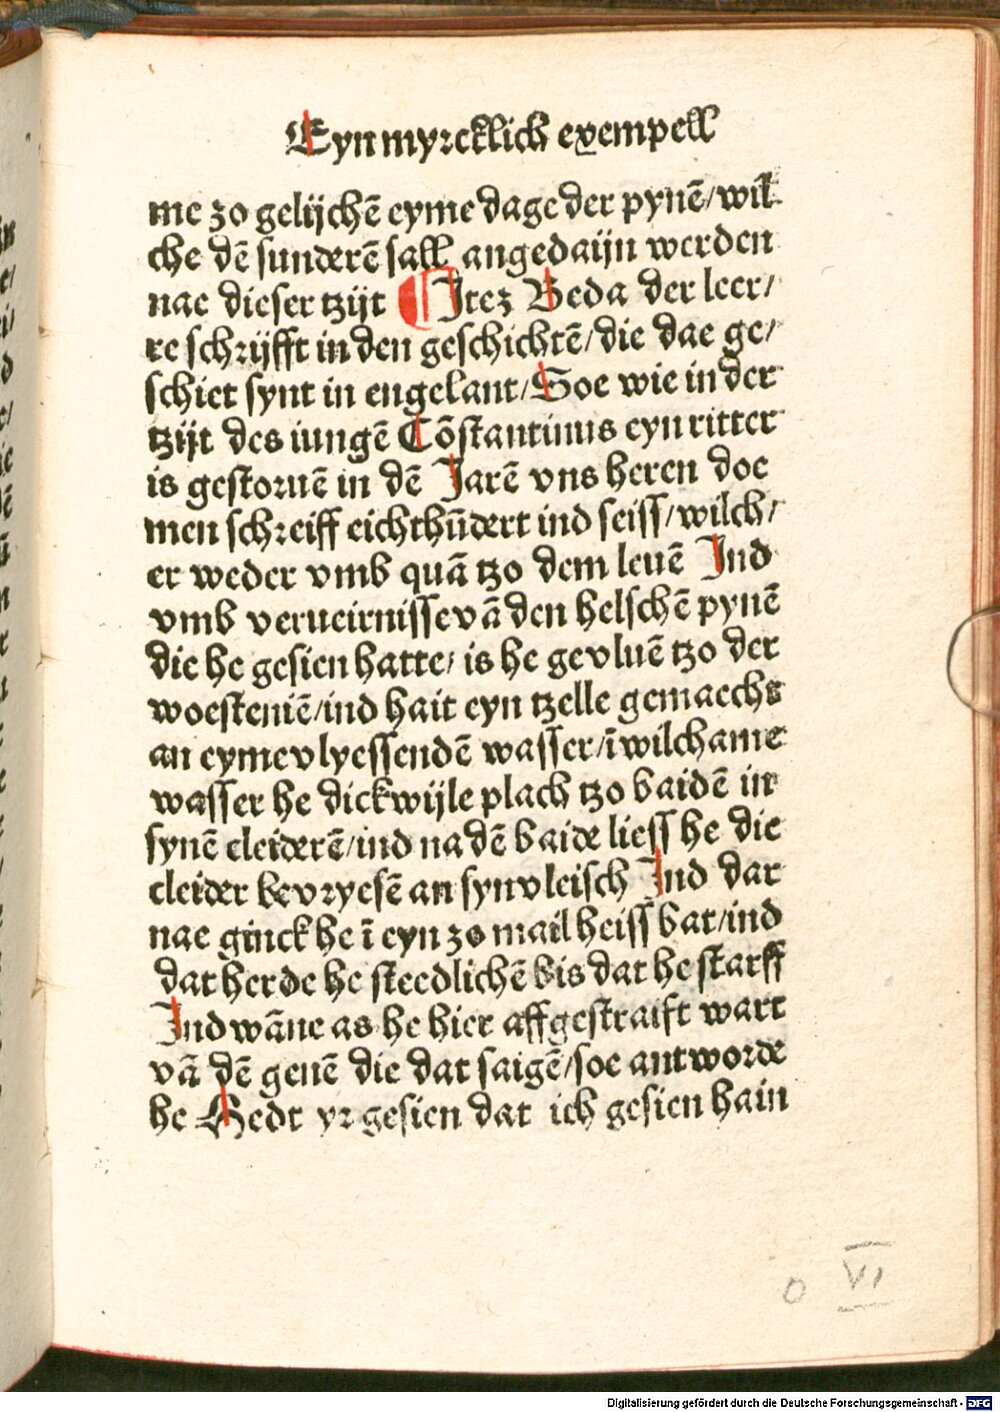 Eyn myrcklich exempell
me zo gelijchē eyme dage der pynē/wil
che dē sunderē sall angedaijn werden
nae dieser tzijt ¶ Itez Beda der leer/
re schrijfft in den geschichtē/die dae ge/
schiet synt in engelant/Soe wie in der
tzijt des iungē Cōstantinus eyn ritter
is gestoruē in dē Jarē vns heren doe
men schreiff eichthūdert ind seiss/wilch/
er weder vmb quā tzo dem leuē Ind
vmb verueirnisse vā den helschē pynē
die he gesien hatte/ is he gevluē tzo der
woesteniē/ind hait eyn tzelle gemaecht
an eyme vlyessendē wasser/ī wilchame
wasser he dickwijle plach tzo baidē in
synē cleiderē/ind na dē baide liess he die
cleider bevryesē an syn vleisch Ind dar
nae ginck he ī eyn zo mail heiss bat/ind
dat herde he steedlichē bis dat he starff
Ind wāne as he hier affgestraift wart
vā dē genē die dat saigē/soe antworde
he Hedt yr gesien dat ich gesien hain
O VI
Digitalisierung gefördert durch die Deutsche Forschungsgemeinschaft - DFG